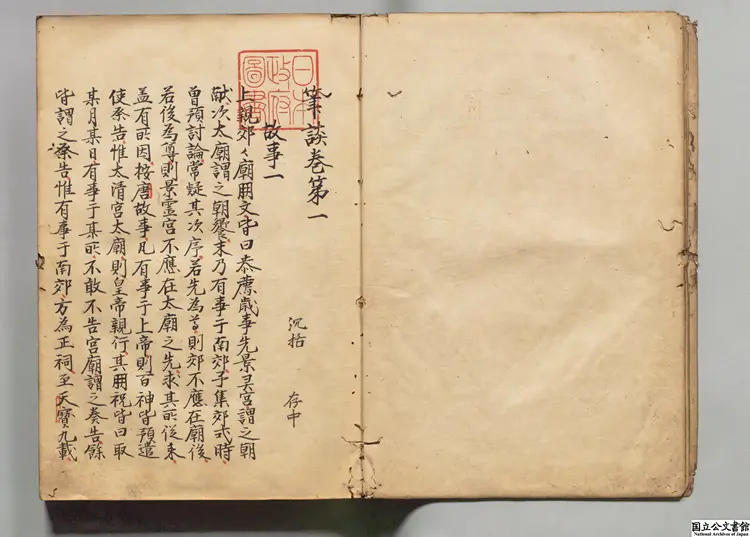 筆談卷第一
沉括　存中
故事一
上親郊〻廟冊文皆曰恭薦歲事先景灵宮謂之朝
献次太廟謂之朝饗末乃有事于南郊予集郊式時
曽預討論常疑其次序若先為尊則郊不應在廟後
若後為尊則景靈宮不應在太廟之先求其所従来
盖有所因按唐故事凡有事于上帝則百神皆預遣
使祭告惟太清宮太廟則皇帝親行其冊祝皆曰取
某月某日有事于某所不敢不告宮廟謂之奏告餘
皆謂之祭告惟有事于南郊方為正祠至天寶九載
日本
政府
圖書
国立公文書館
National Archives of Japan